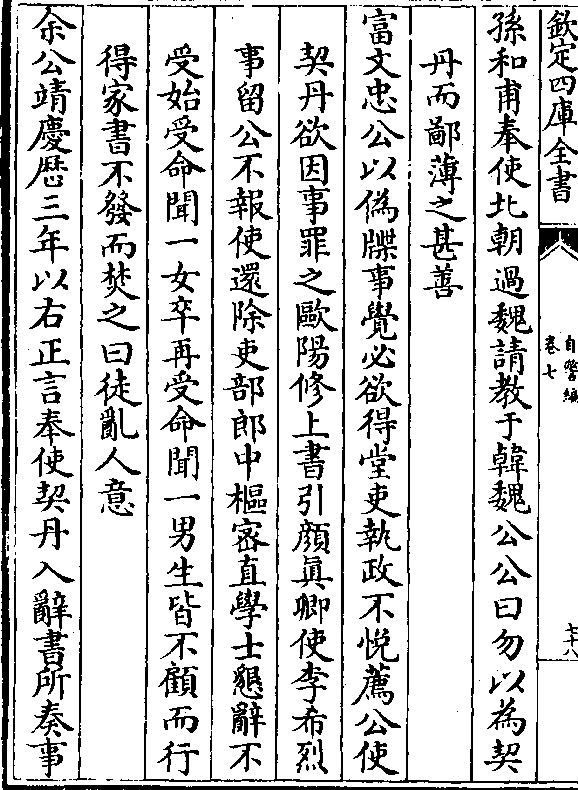 欽定四庫全書
自警編
卷七
七十八
孫和甫奉使北朝過魏請教于韓魏公公曰勿以為契
丹而鄙薄之甚善
富文忠公以偽牒事覺必欲得堂吏執政不悅薦公使
契丹欲因事罪之歐陽修上書引顏真卿使李希烈
事留公不報使還除吏部郎中樞密直學士懇辭不
受始受命聞一女卒再受命聞一男生皆不顧而行
得家書不發而焚之曰徒亂人意
余公靖慶歷三年以右正言奉使契丹入辭書所奏事